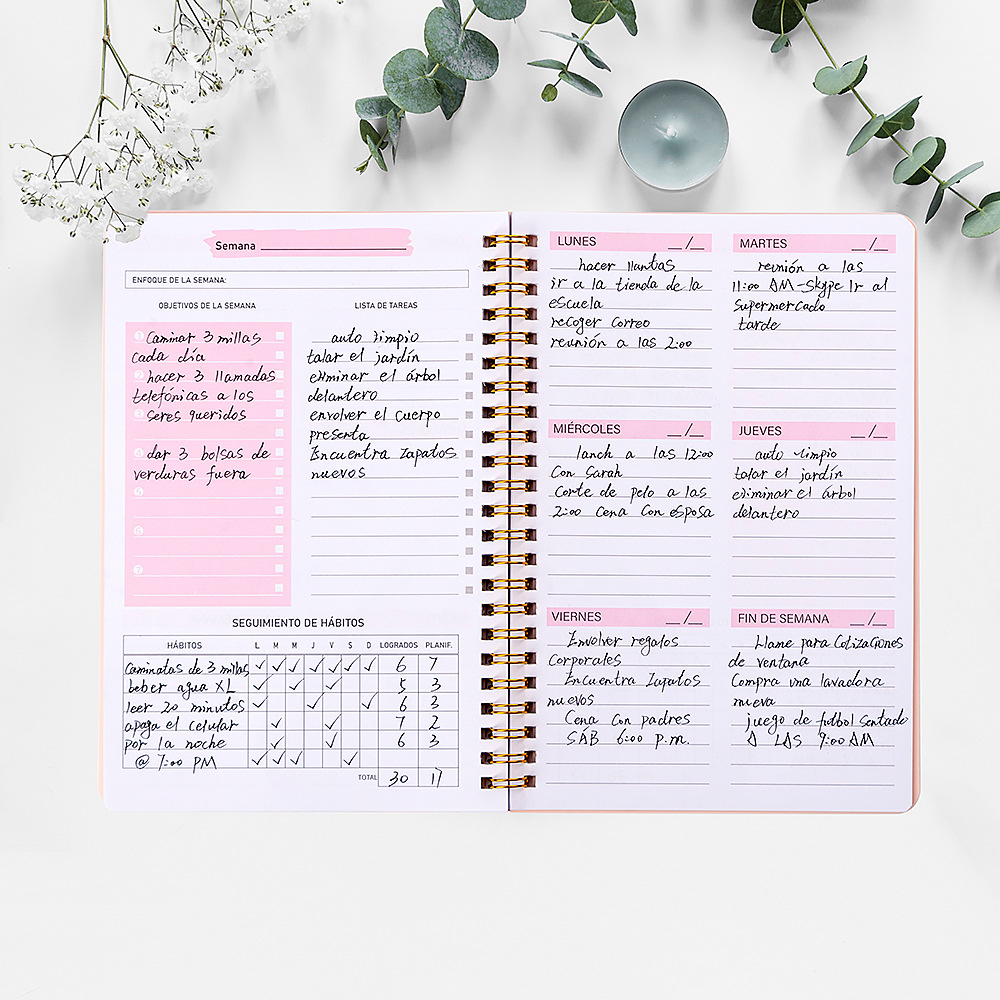 Semana
ENFOQUE DE LA SEMANA:
OBJETIVOS DE LA SEMANA
1 Caminar 3 millas
cada día
2 hacer 3 llamadas
telefónicas a los
3 seres queridos
4 dar 3 bolsas de
verduras fuera
5
6
7
LISTA DE TAREAS
auto limpio
talar el jardín
eliminar el árbol
delantero
envolver el cuerpo
presenta
Encuentra Zapatos
nuevos
SEGUIMIENTO DE HÁBITOS
HÁBITOS L M M J V S D LOGRADOS PLANIF.
Caminatas de 3 millas ✓ ✓ ✓ ✓ ✓ ✓ ✓ 6 7
beber agua XL ✓ ✓ ✓ 5 3
leer 20 minutos ✓ ✓ ✓ 6 3
apaga el celular ✓ ✓ 7 2
por la noche ✓ ✓ 6 3
@ 7:00 PM ✓ ✓ ✓ ✓
TOTAL 30 17
LUNES __/__
hacer llantas
ir a la tienda de la
escuela
recoger correo
reunión a las 2:00
MARTES __/__
reunión a las
11:00 AM-Skype Ir al
supermercado
tarde
MIÉRCOLES __/__
lanch a las 12:00
Con Sarah
Corte de pelo a las
2:00 Cena Con esposa
JUEVES __/__
auto limpio
talar el jardín
eliminar el árbol
delantero
VIERNES __/__
Envolver regalos
Corporales
Encuentra Zapatos
nuevos
Cena Con padres
SÁB 6:00 P.m.
FIN DE SEMANA __/__
Llame para Cotizaciones
de ventana
Compra una lavadora
nueva
juego de futbol Sentado
A LAS 9:00 AM